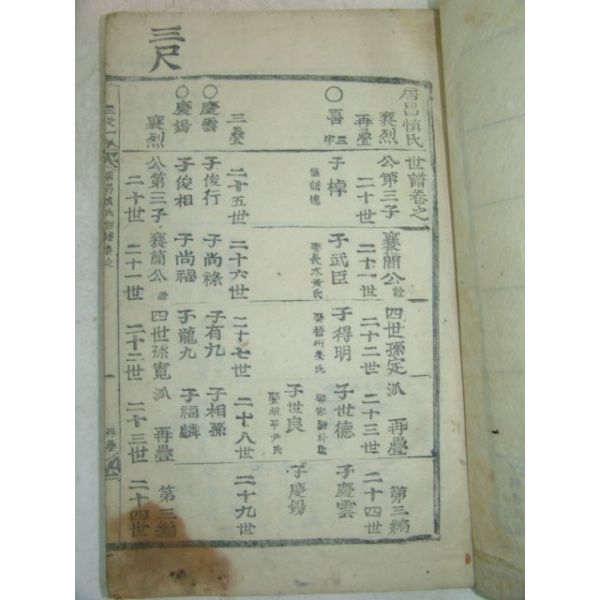 三尺
居昌愼氏世譜卷之
襄烈公第三子 襄簡公詮 四世孫定派 再疊 第三編
再疊 二十世 二十一世 二十二世 二十三世 二十四世
○喜 子棹 子武臣 子得明 子世德 子慶雲
子世良 子慶錫
三疊 二十五世 二十六世 二十七世 二十八世 二十九世
○慶雲 子俊行 子尚祿 子有九 子相孫
○慶錫 子俊相 子尚福 子龍九 子福麟
襄烈公第三子 襄簡公詮 四世孫寬派 再疊 第三編
二十世 二十一世 二十二世 二十三世 二十四世
再疊